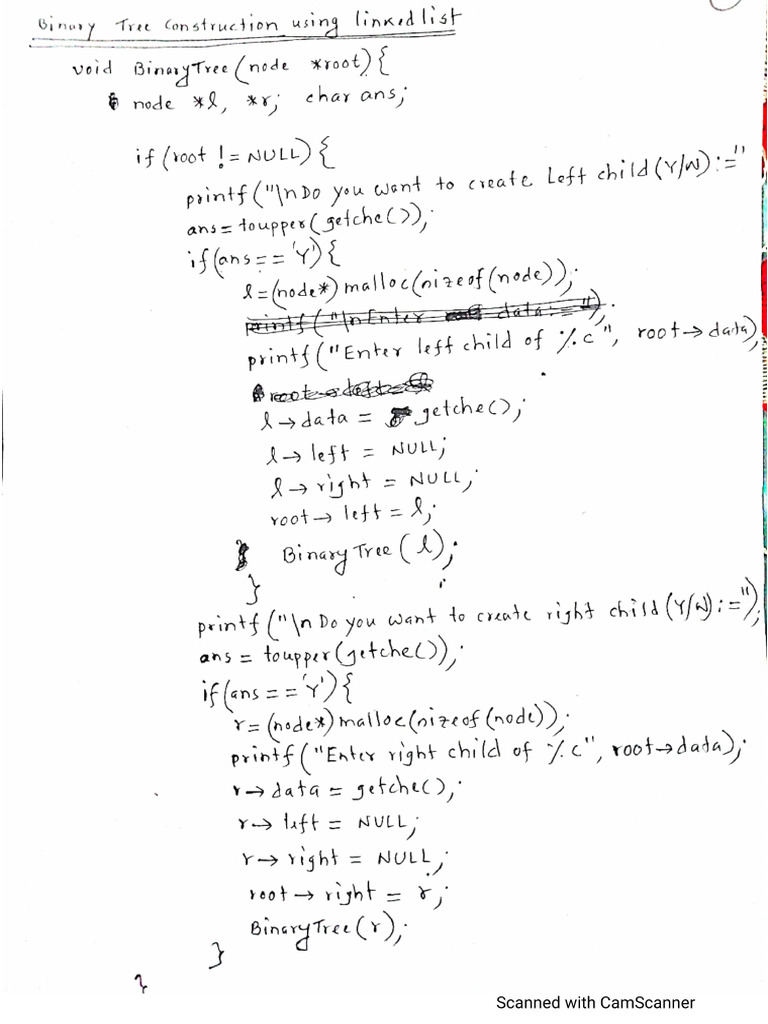 Binary Tree Construction using linked list
void BinaryTree(node *root){
node *l, *r; char ans;
if(root != NULL){
printf("\nDo you want to create Left child(Y/N):="
ans=toupper(getche());
if(ans=='Y'){
l=(node*)malloc(sizeof(node));
printf("\nEnter data:=");
printf("Enter left child of %c", root→data);
l→data = getche();
l→left = NULL;
l→right = NULL;
root→left = l;
BinaryTree(l);
}
printf("\nDo you want to create right child(Y/N):=");
ans = toupper(getche());
if(ans=='Y'){
r=(node*)malloc(sizeof(node));
printf("Enter right child of %c", root→data);
r→data = getche();
r→left = NULL;
r→right = NULL;
root→right = r;
BinaryTree(r);
}
}
Scanned with CamScanner